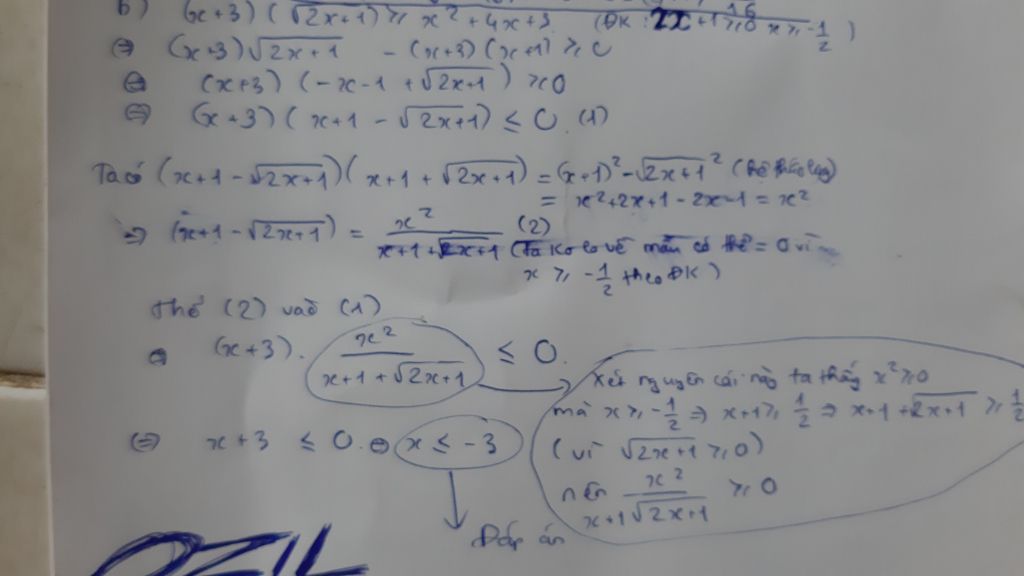 b) (x+3)(√2x+1) ≥ x² + 4x+3 (ĐK: 2x+1 ≥ 0 x ≥ -1/2)
⇔ (x+3)√2x+1 - (x+3)(x+1) ≥ 0
⇔ (x+3)(-x-1 + √2x+1) ≥ 0
⇔ (x+3)(x+1 - √2x+1) ≤ 0 (1)
Ta có (x+1-√2x+1)(x+1+√2x+1) = (x+1)² - √2x+1²
= x²+2x+1-2x-1 = x²
⇒ (x+1-√2x+1) = x²/(x+1+√2x+1) (2)
(Ta ko lo về mẫu có thể = 0 vì
x ≥ -1/2 theo ĐK)
Thế (2) vào (1)
⇔ (x+3). x²/(x+1+√2x+1) ≤ 0.
Xét nguyên cái này ta thấy x² ≥ 0
mà x ≥ -1/2 ⇒ x+1 ≥ 1/2 ⇒ x+1+√2x+1 ≥ 1/2
(vì √2x+1 ≥ 0)
nên x²/(x+1√2x+1) ≥ 0
⇔ x+3 ≤ 0 ⇔ x ≤ -3
Đáp án